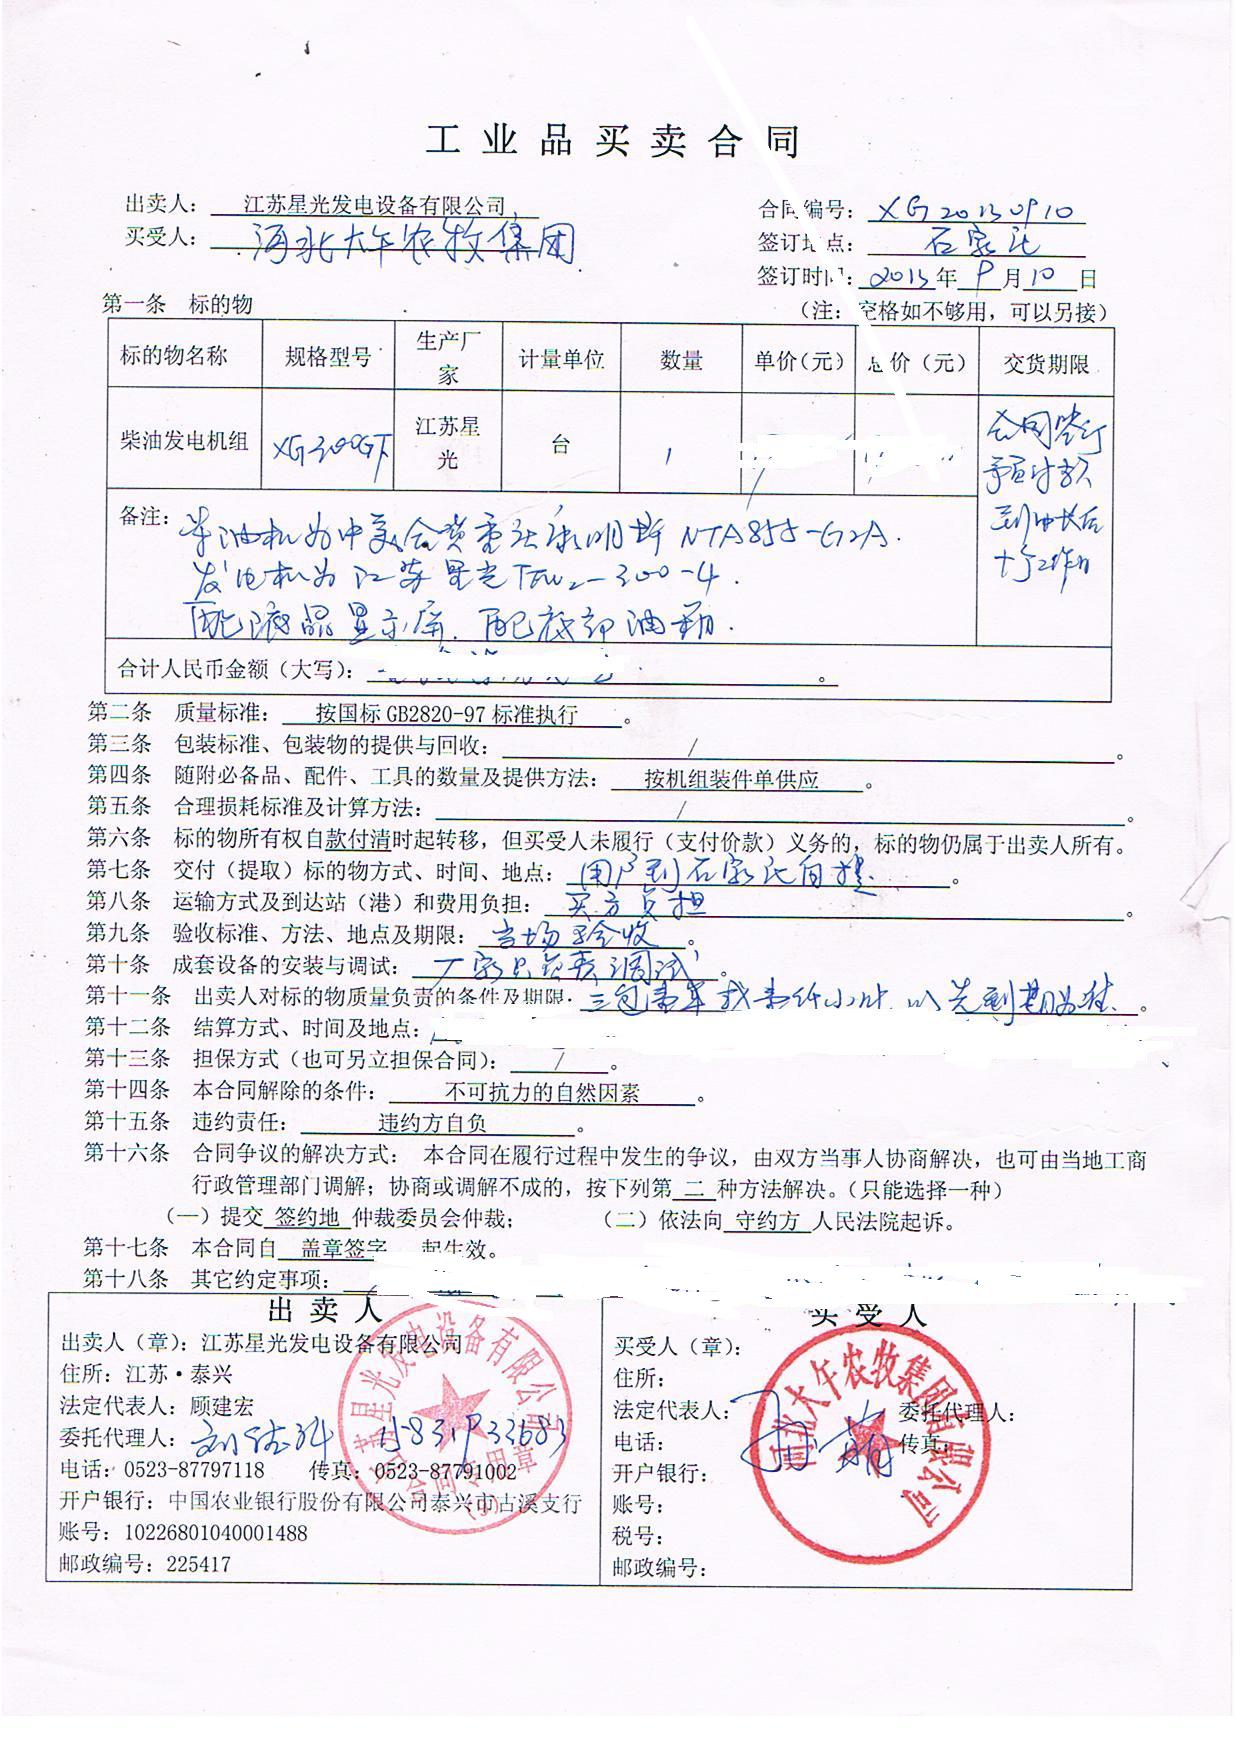 工业品买卖合同
出卖人： 江苏星光发电设备有限公司
买受人： 河北大午农牧集团
合同编号：XG20130910
签订地点： 石家庄
签订时间：2013年9月10日
第一条 标的物
（注：空格如不够用，可以另接）
标的物名称 规格型号 生产厂家 计量单位 数量 单价（元） 总价（元） 交货期限
柴油发电机组 XG300GF 江苏星光 台 1
合同签订
预付款
到帐后
十个工作日
备注：柴油机为中美合资重庆康明斯NTA855-G2A.
发电机为江苏星光TFW2-300-4.
配液晶显示屏.配底部油箱.
合计人民币金额（大写）： 。
第二条 质量标准： 按国标GB2820-97标准执行 。
第三条 包装标准、包装物的提供与回收： / 。
第四条 随附必备品、配件、工具的数量及提供方法： 按机组装件单供应 。
第五条 合理损耗标准及计算方法： / 。
第六条 标的物所有权自款付清时起转移，但买受人未履行（支付价款）义务的，标的物仍属于出卖人所有。
第七条 交付（提取）标的物方式、时间、地点： 用户到石家庄自提 。
第八条 运输方式及到达站（港）和费用负担： 买方负担 。
第九条 验收标准、方法、地点及期限： 当场验收 。
第十条 成套设备的安装与调试： 厂家只负责调试 。
第十一条 出卖人对标的物质量负责的条件及期限：三包壹年或壹仟小时.以先到期为准.。
第十二条 结算方式、时间及地点：
第十三条 担保方式（也可另立担保合同）： / 。
第十四条 本合同解除的条件： 不可抗力的自然因素 。
第十五条 违约责任： 违约方自负 。
第十六条 合同争议的解决方式： 本合同在履行过程中发生的争议，由双方当事人协商解决，也可由当地工商
行政管理部门调解；协商或调解不成的，按下列第 二 种方法解决。（只能选择一种）
（一）提交 签约地 仲裁委员会仲裁； （二）依法向 守约方 人民法院起诉。
第十七条 本合同自 盖章签字 起生效。
第十八条 其它约定事项：
出卖人
出卖人（章）：江苏星光发电设备有限公司
住所：江苏·泰兴
法定代表人：顾建宏
委托代理人：
电话：0523-87797118 传真：0523-87791002
开户银行：中国农业银行股份有限公司泰兴市古溪支行
账号：10226801040001488
邮政编号：225417
江苏星光发电设备有限公司
合同专用章
买受人
买受人（章）：
住所：
法定代表人： 委托代理人：
电话： 传真：
开户银行：
账号：
税号：
邮政编号：
河北大午农牧集团有限公司